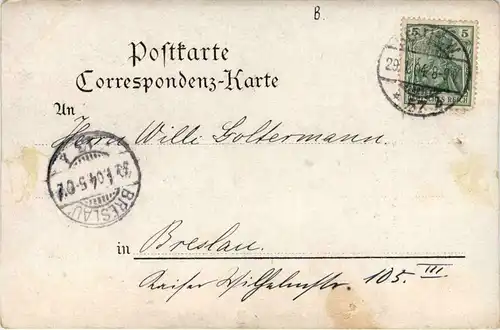 B.
5 5
29. .04. 8-
* 57. b
Postkarte
Correspondenz-Karte
An
Herrn Willi Goltermann.
.04. 5-
BRESLAU
in Breslau.
Kaiser Wilhelmstr. 105 III.